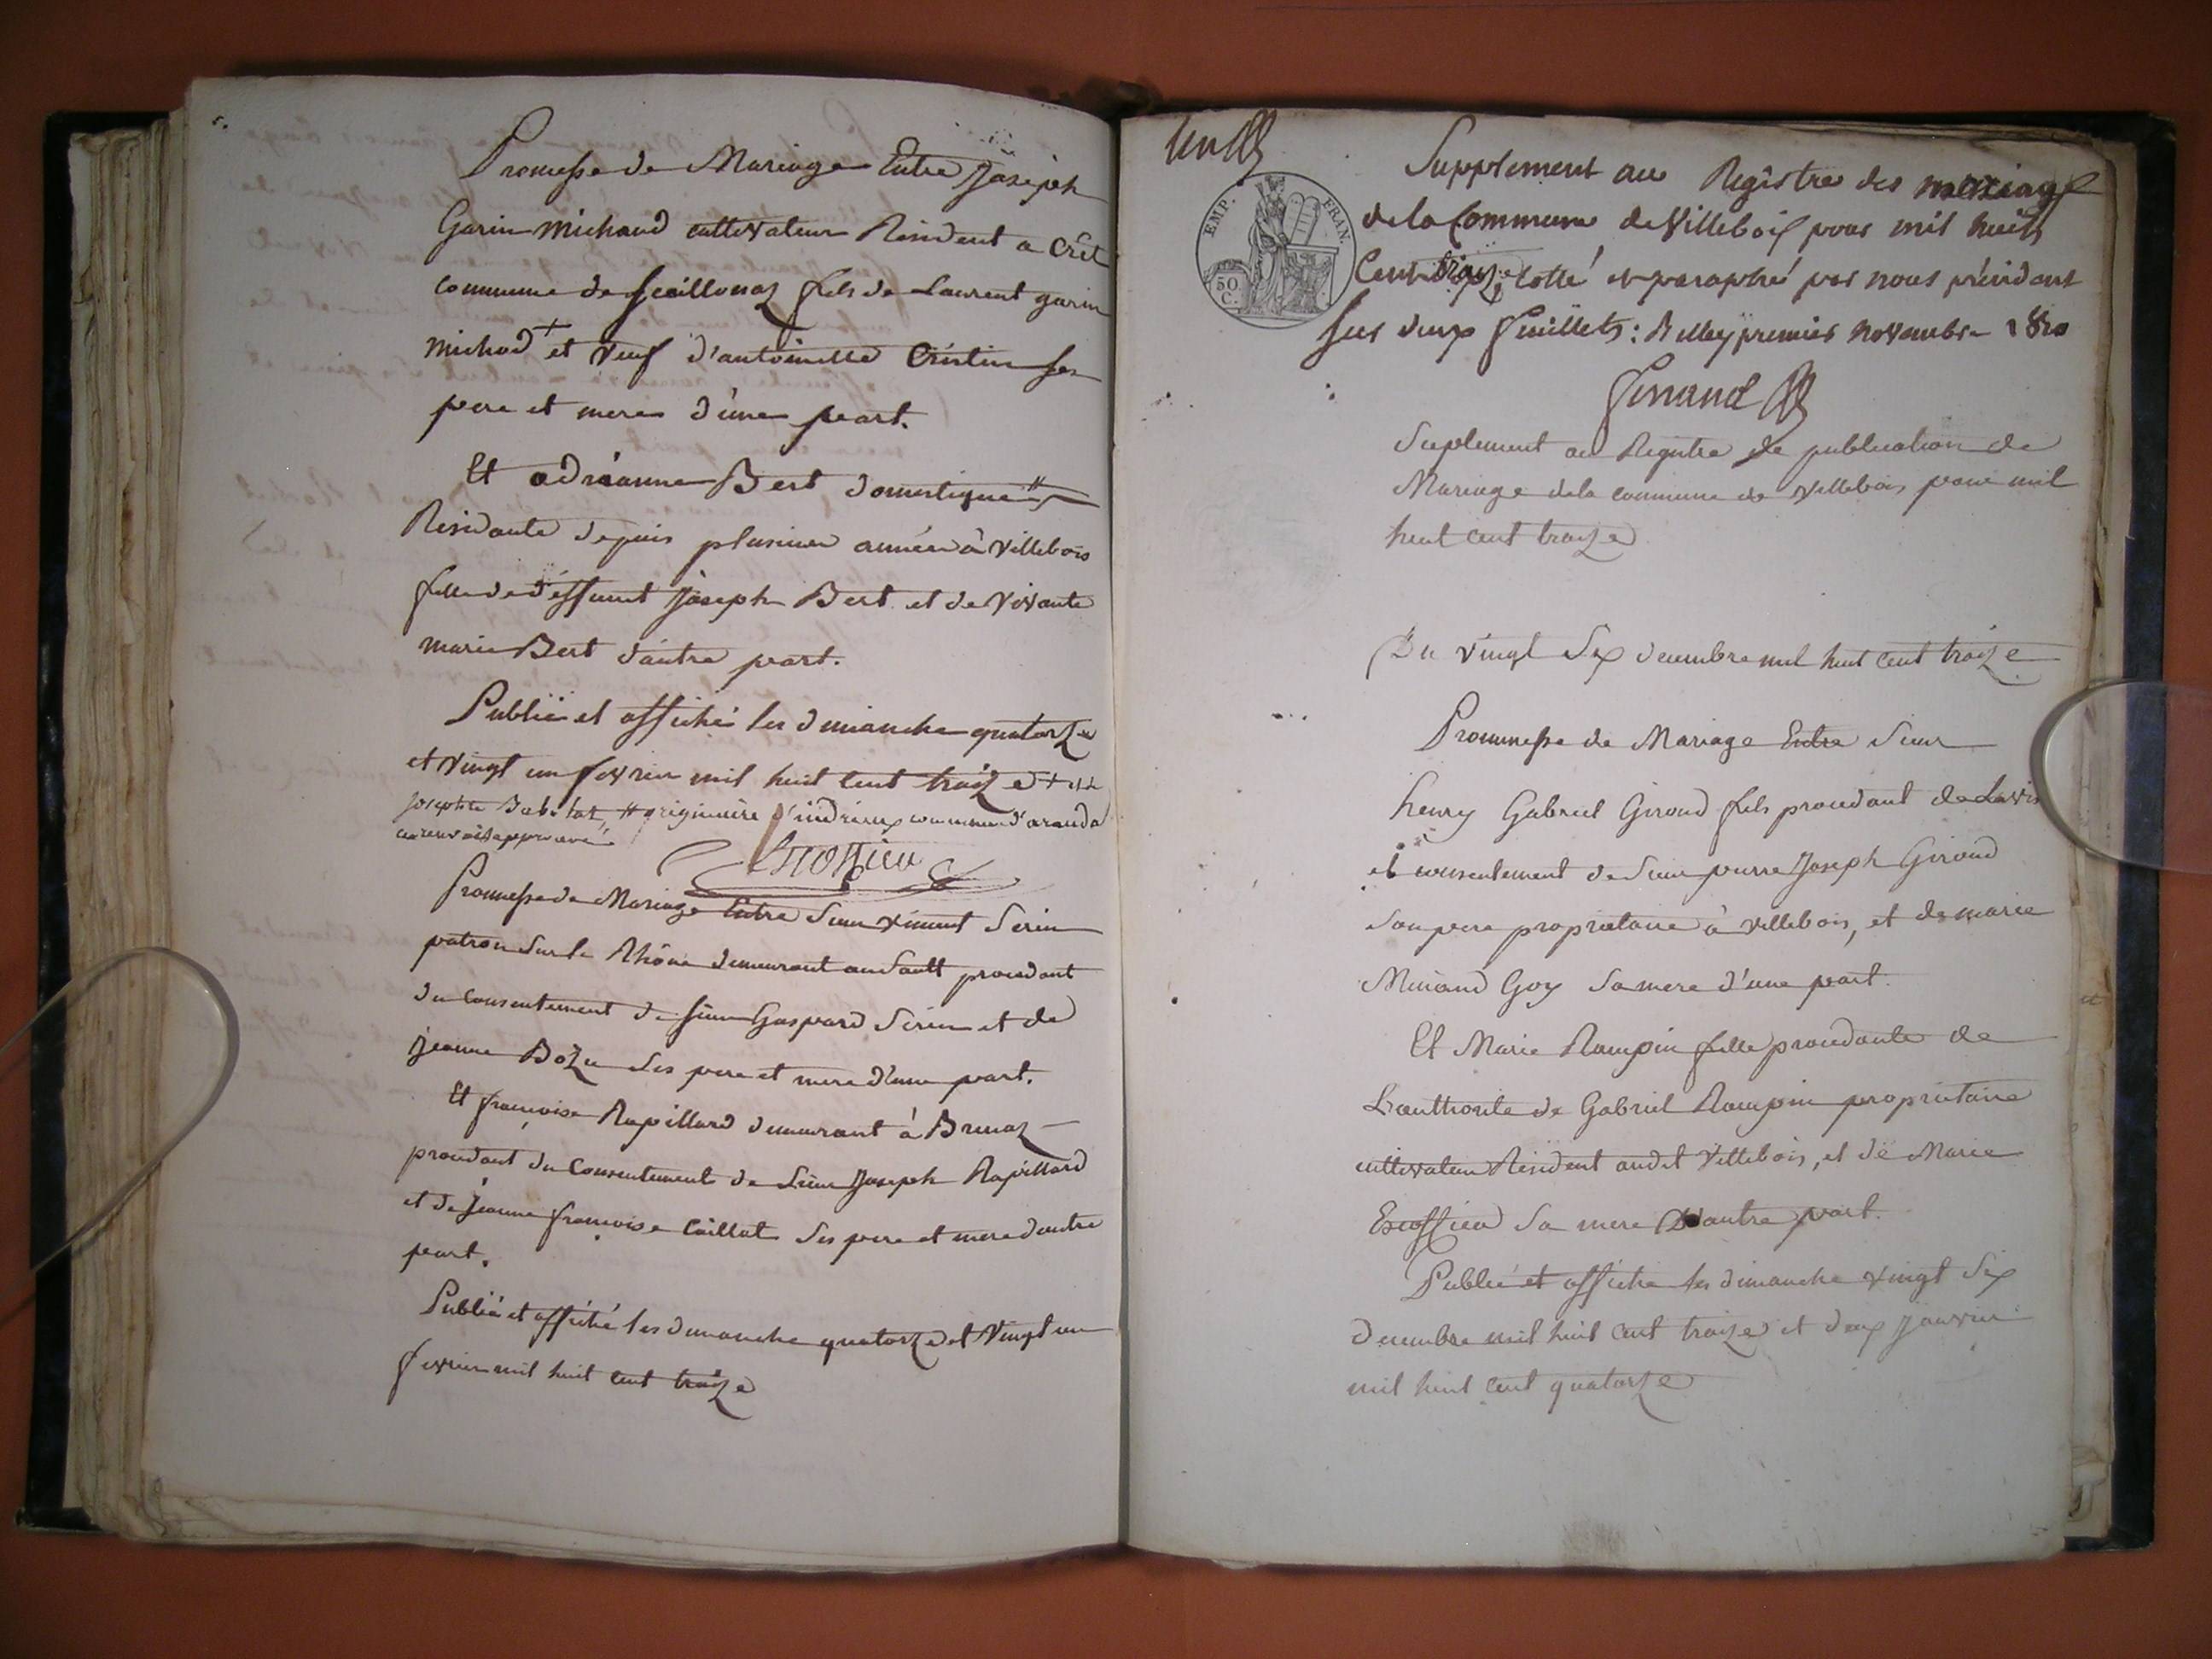 Promesse de Mariage Entre Joseph
Garin michaud cultivateur Resident a Crêt
commune de Seillonaz fils de Laurent garin
michod + et veuf d'antoinette Cristin ses
pere et mere d'une part.
Et adrianne Bert domestique #
Residante depuis plusieur année à villebois
fille de déffunt Joseph Bert et de vivante
marie Bert d'autre part.
Publié et affiché les dimanche quatorze
et vingt un fevrier mil huit cent traize + et de
josephte Babolat, # originaire d'indrieux commune d'aranda
renvois approuvé
Promesse de Mariage Entre Sieur vincent Serin
patron sur le Rhône demeurant au Sault procedant
du consentement de sieur Gaspard Serin et de
jeanne Bozu ses pere et mere d'une part.
Et françoise Rapillard demeurant à Brenaz
procedant du Consentement de Sieur Joseph Rapillard
et de Jeanne françoise Caillat ses pere et mere d'autre
part.
Publié et affiché les dimanche quatorze et Vingt un
fevrier mil huit cent traize
Supplement au Registre des mariages
de la Commune de Villebois pour mil huit
Cent treize cotté et paraphé par nous président
sur deux feuillets : Belley premier novembre 18
EMP. FRAN.
50
C.
Suplement au Registre de publication de
Mariage de la commune de villebois pour mil
huit cent traize
Du vingt Six decembre mil huit cent traize
Prommesse de Mariage Entre Sieur
henry Gabriel Giroud fils procedant de Lavis
et consentement de Sieur pierre Joseph Giroud
son pere proprietaire à villebois, et de marie
Goy sa mere d'une part.
Et Marie Rampin fille procedante de
L'authorité de Gabriel Rampin proprietaire
cultivateur Résident audit Villebois, et de Marie
Escoffier sa mere D'autre part.
Publié et affiché les dimanche vingt Six
decembre mil huit cent traize et deux janvier
mil huit cent quatorze